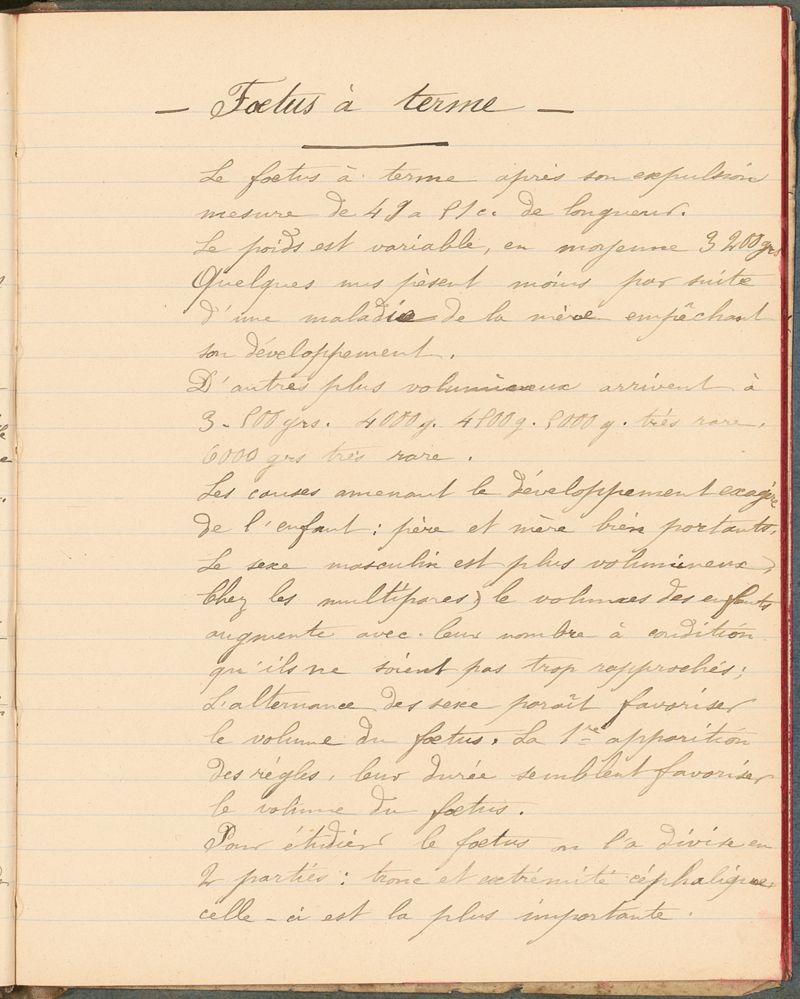 — Fœtus à terme —
Le fœtus à terme après son expulsion
mesure de 49 a 51c. de longueur.
Le poids est variable, en moyenne 3200grs
Quelques uns pèsent moins par suite
d'une maladie de la mère empêchant
son développement.
D'autres plus volumineux arrivent à
3-500grs. 4000g. 4500g. 5000g. très rare.
6000 grs très rare.
Les causes amenant le développement exagéré
de l'enfant : père et mère bien portants.
Le sexe masculin est plus volumineux,
Chez les multipares) le volumes des enfants
augmente avec leur nombre à condition
qu'ils ne soient pas trop rapprochés ;
L'alternance des sexe paraît favoriser
le volume du fœtus. La 1re apparition
des règles, leur durée semblent favoriser
le volume du fœtus.
Pour étudier le fœtus on l'a divise en
2 parties : tronc et extrémité céphalique
celle-ci est la plus importante.